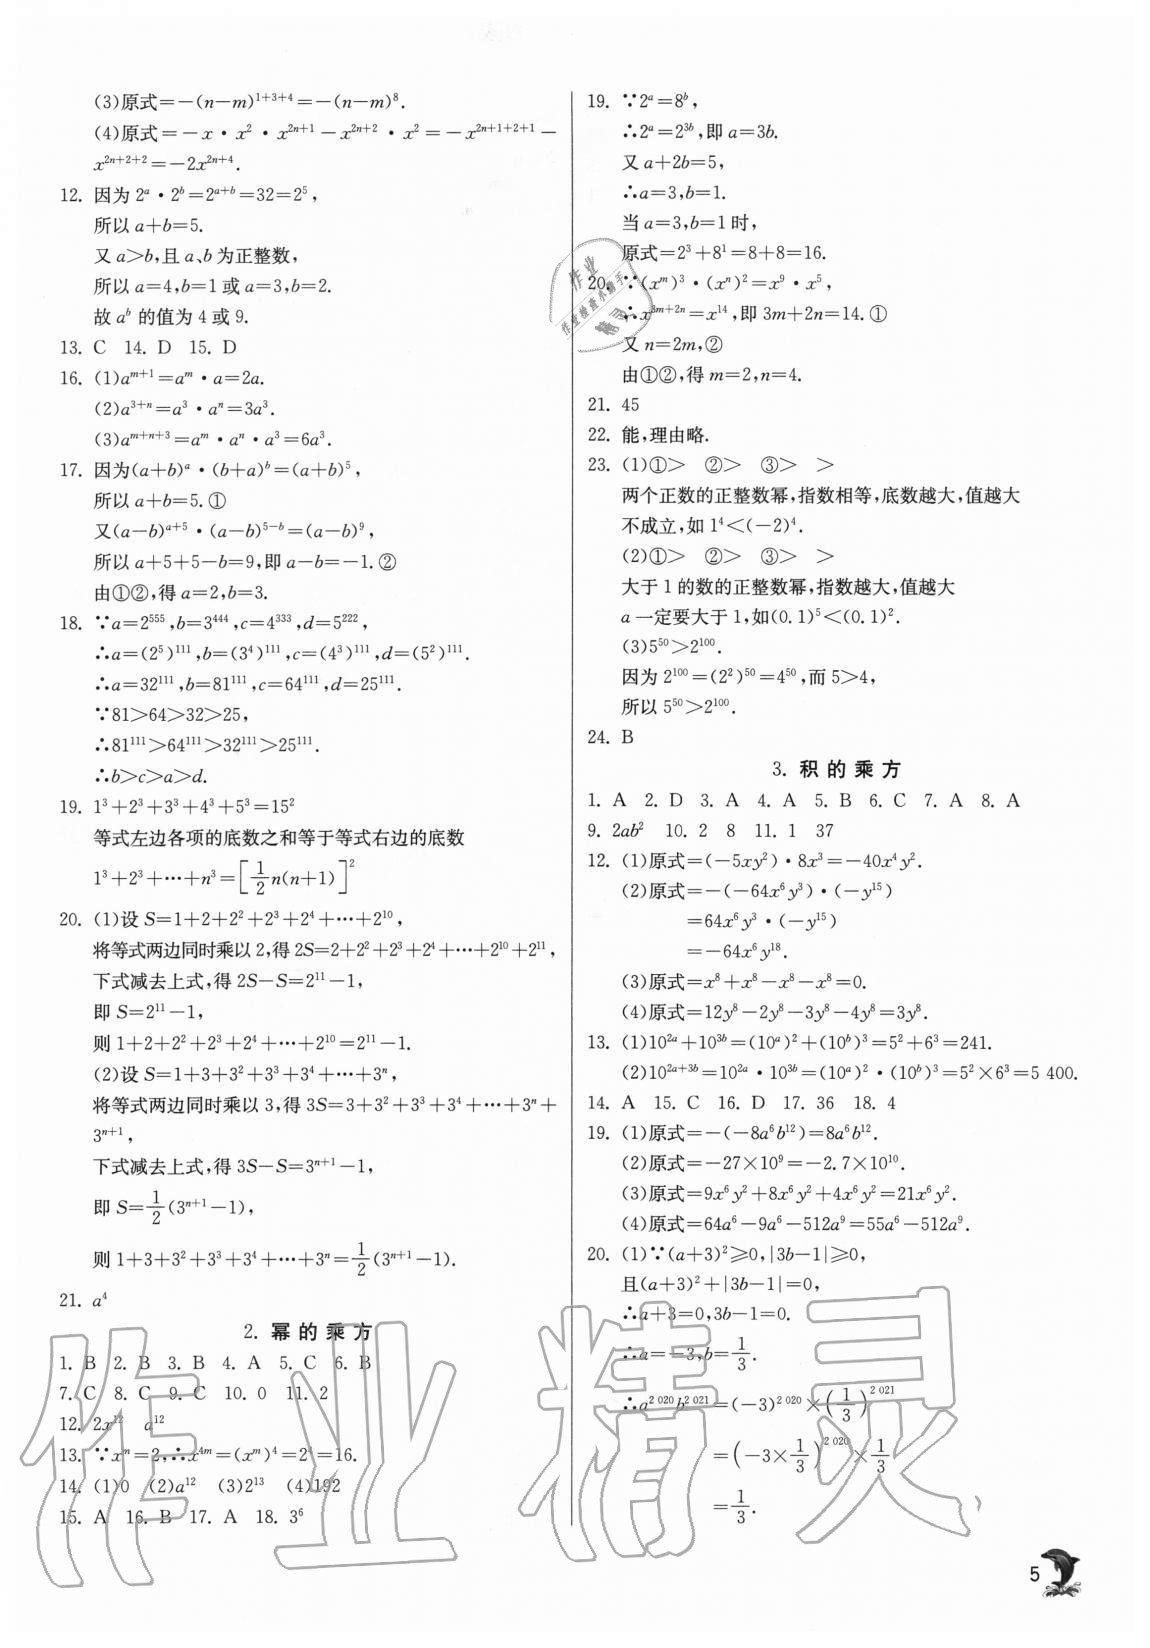 (3)原式=-(n-m)¹⁺³⁺⁴=-(n-m)⁸.
(4)原式=-x·x²·x²ⁿ⁺¹-x²ⁿ⁺²·x²=-x²ⁿ⁺¹⁺²⁺¹-
x²ⁿ⁺²⁺²=-2x²ⁿ⁺⁴.
12. 因为 2ᵃ·2ᵇ=2ᵃ⁺ᵇ=32=2⁵,
所以 a+b=5.
又 a>b,且 a、b 为正整数,
所以 a=4,b=1 或 a=3,b=2.
故 aᵇ 的值为 4 或 9.
13. C 14. D 15. D
16. (1)aᵐ⁺¹=aᵐ·a=2a.
(2)a³⁺ⁿ=a³·aⁿ=3a³.
(3)aᵐ⁺ⁿ⁺³=aᵐ·aⁿ·a³=6a³.
17. 因为(a+b)ᵃ·(b+a)ᵇ=(a+b)⁵,
所以 a+b=5.①
又(a-b)ᵃ⁺⁵·(a-b)⁵⁻ᵇ=(a-b)⁹,
所以 a+5+5-b=9,即 a-b=-1.②
由①②,得 a=2,b=3.
18. ∵a=2⁵⁵⁵,b=3⁴⁴⁴,c=4³³³,d=5²²²,
∴a=(2⁵)¹¹¹,b=(3⁴)¹¹¹,c=(4³)¹¹¹,d=(5²)¹¹¹.
∴a=32¹¹¹,b=81¹¹¹,c=64¹¹¹,d=25¹¹¹.
∵81>64>32>25,
∴81¹¹¹>64¹¹¹>32¹¹¹>25¹¹¹.
∴b>c>a>d.
19. 1³+2³+3³+4³+5³=15²
等式左边各项的底数之和等于等式右边的底数
1³+2³+⋯+n³=[1/2 n(n+1)]²
20. (1)设 S=1+2+2²+2³+2⁴+⋯+2¹⁰,
将等式两边同时乘以 2,得 2S=2+2²+2³+2⁴+⋯+2¹⁰+2¹¹,
下式减去上式,得 2S-S=2¹¹-1,
即 S=2¹¹-1,
则 1+2+2²+2³+2⁴+⋯+2¹⁰=2¹¹-1.
(2)设 S=1+3+3²+3³+3⁴+⋯+3ⁿ,
将等式两边同时乘以 3,得 3S=3+3²+3³+3⁴+⋯+3ⁿ+
3ⁿ⁺¹,
下式减去上式,得 3S-S=3ⁿ⁺¹-1,
即 S=1/2(3ⁿ⁺¹-1),
则 1+3+3²+3³+3⁴+⋯+3ⁿ=1/2(3ⁿ⁺¹-1).
21. a⁴
2. 幂的乘方
1. B 2. B 3. B 4. A 5. C 6. B
7. C 8. C 9. C 10. 0 11. 2
12. 2x¹² a¹²
13. ∵xᵐ=2,∴x⁴ᵐ=(xᵐ)⁴=2⁴=16.
14. (1)0 (2)a¹² (3)2¹³ (4)192
15. A 16. B 17. A 18. 3⁶
19. ∵2ᵃ=8ᵇ,
∴2ᵃ=2³ᵇ,即 a=3b.
又 a+2b=5,
∴a=3,b=1.
当 a=3,b=1 时,
原式=2³+8¹=8+8=16.
20. ∵(xᵐ)³·(xⁿ)²=x⁹·x⁵,
∴x³ᵐ⁺²ⁿ=x¹⁴,即 3m+2n=14.①
又 n=2m,②
由①②,得 m=2,n=4.
21. 45
22. 能,理由略.
23. (1)①> ②> ③> >
两个正数的正整数幂,指数相等,底数越大,值越大
不成立,如 1⁴<(-2)⁴.
(2)①> ②> ③> >
大于 1 的数的正整数幂,指数越大,值越大
a 一定要大于 1,如(0.1)⁵<(0.1)².
(3)5⁵⁰>2¹⁰⁰.
因为 2¹⁰⁰=(2²)⁵⁰=4⁵⁰,而 5>4,
所以 5⁵⁰>2¹⁰⁰.
24. B
3. 积的乘方
1. A 2. D 3. A 4. A 5. B 6. C 7. A 8. A
9. 2ab² 10. 2 8 11. 1 37
12. (1)原式=(-5xy²)·8x³=-40x⁴y².
(2)原式=-(-64x⁶y³)·(-y¹⁵)
=64x⁶y³·(-y¹⁵)
=-64x⁶y¹⁸.
(3)原式=x⁸+x⁸-x⁸-x⁸=0.
(4)原式=12y⁸-2y⁸-3y⁸-4y⁸=3y⁸.
13. (1)10²ᵃ+10³ᵇ=(10ᵃ)²+(10ᵇ)³=5²+6³=241.
(2)10²ᵃ⁺³ᵇ=10²ᵃ·10³ᵇ=(10ᵃ)²·(10ᵇ)³=5²×6³=5 400.
14. A 15. C 16. D 17. 36 18. 4
19. (1)原式=-(-8a⁶b¹²)=8a⁶b¹².
(2)原式=-27×10⁹=-2.7×10¹⁰.
(3)原式=9x⁶y²+8x⁶y²+4x⁶y²=21x⁶y².
(4)原式=64a⁶-9a⁶-512a⁹=55a⁶-512a⁹.
20. (1)∵(a+3)²≥0,|3b-1|≥0,
且(a+3)²+|3b-1|=0,
∴a+3=0,3b-1=0.
∴a=-3,b=1/3.
∴a²⁰²⁰b²⁰²¹=(-3)²⁰²⁰×(1/3)²⁰²¹
=(-3×1/3)²⁰²⁰×1/3
=1/3.
5
作业
作业检查小助手
精灵
作业精灵